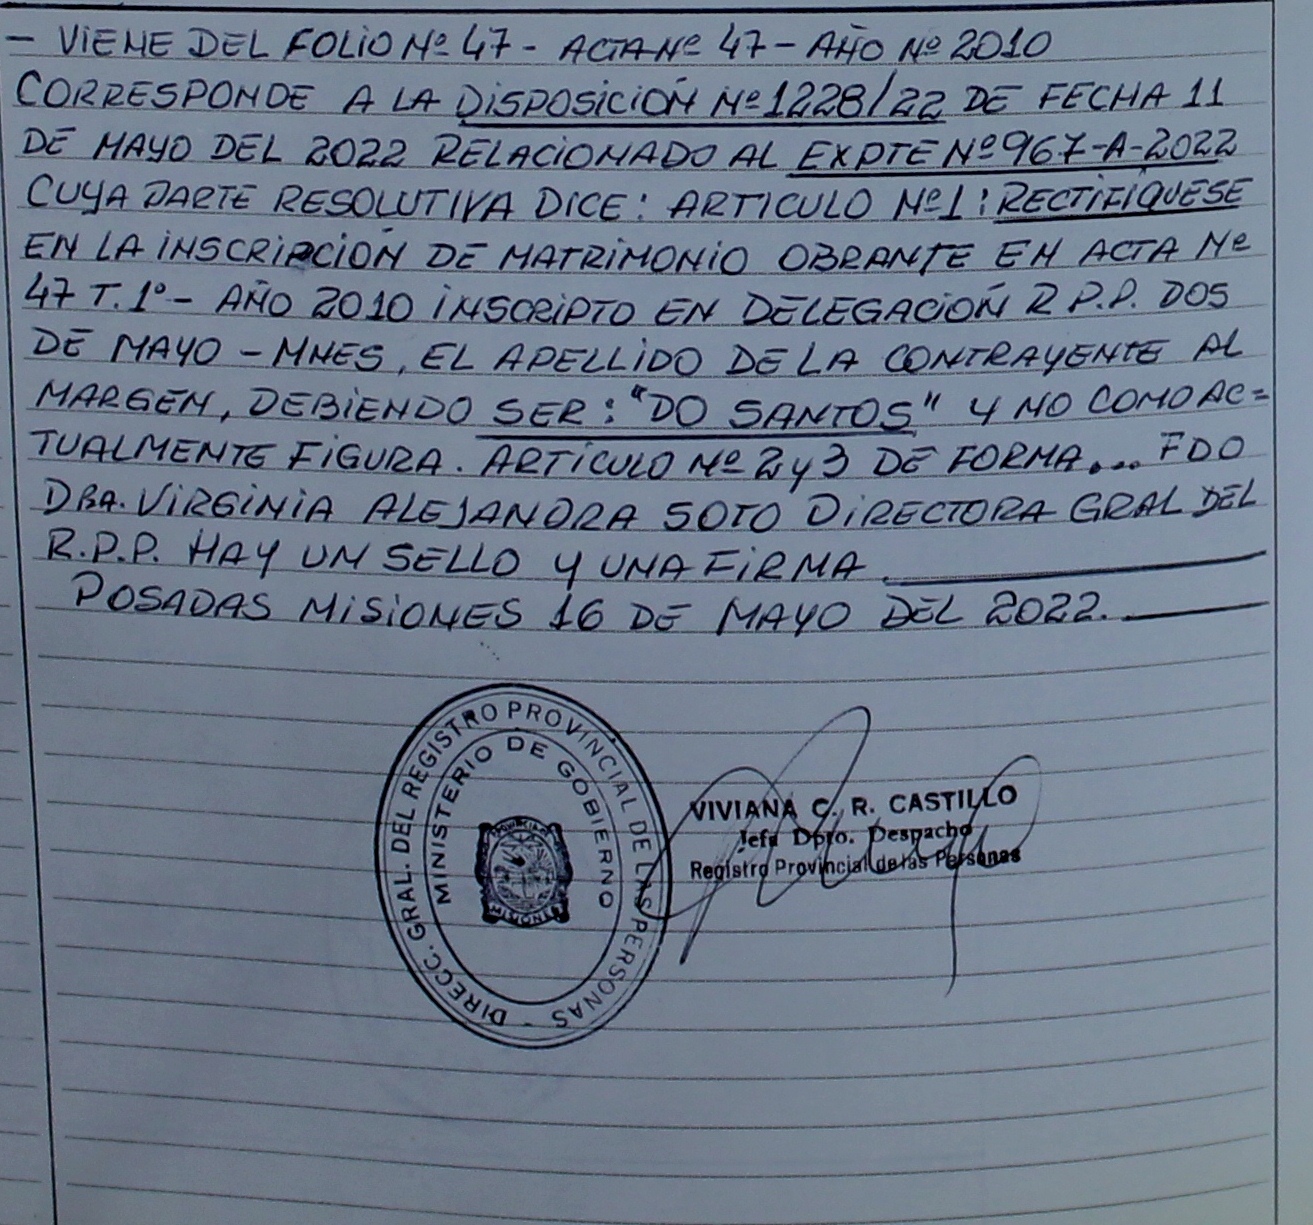 - VIENE DEL FOLIO Nº 47 - ACTA Nº 47 - AÑO Nº 2010
CORRESPONDE A LA DISPOSICIÓN Nº 1228/22 DE FECHA 11
DE MAYO DEL 2022 RELACIONADO AL EXPTE Nº 967-A-2022
CUYA PARTE RESOLUTIVA DICE: ARTICULO Nº1: RECTIFÍQUESE
EN LA INSCRIPCIÓN DE MATRIMONIO OBRANTE EN ACTA Nº
47 T. 1º - AÑO 2010 INSCRIPTO EN DELEGACIÓN R.P.P. DOS
DE MAYO - MNES, EL APELLIDO DE LA CONTRAYENTE AL
MARGEN, DEBIENDO SER: "DO SANTOS" Y NO COMO AC=
TUALMENTE FIGURA. ARTÍCULO Nº 2 y 3 DE FORMA... FDO
DRA. VIRGINIA ALEJANDRA SOTO DIRECTORA GRAL DEL
R.P.P. HAY UN SELLO Y UNA FIRMA
POSADAS MISIONES 16 DE MAYO DEL 2022.
DIRECC. GRAL. DEL REGISTRO PROVINCIAL DE LAS PERSONAS -
MINISTERIO DE GOBIERNO
PROVINCIA
MISIONES
VIVIANA C. R. CASTILLO
Jefa Dpto. Despacho
Registro Provincial de las Personas